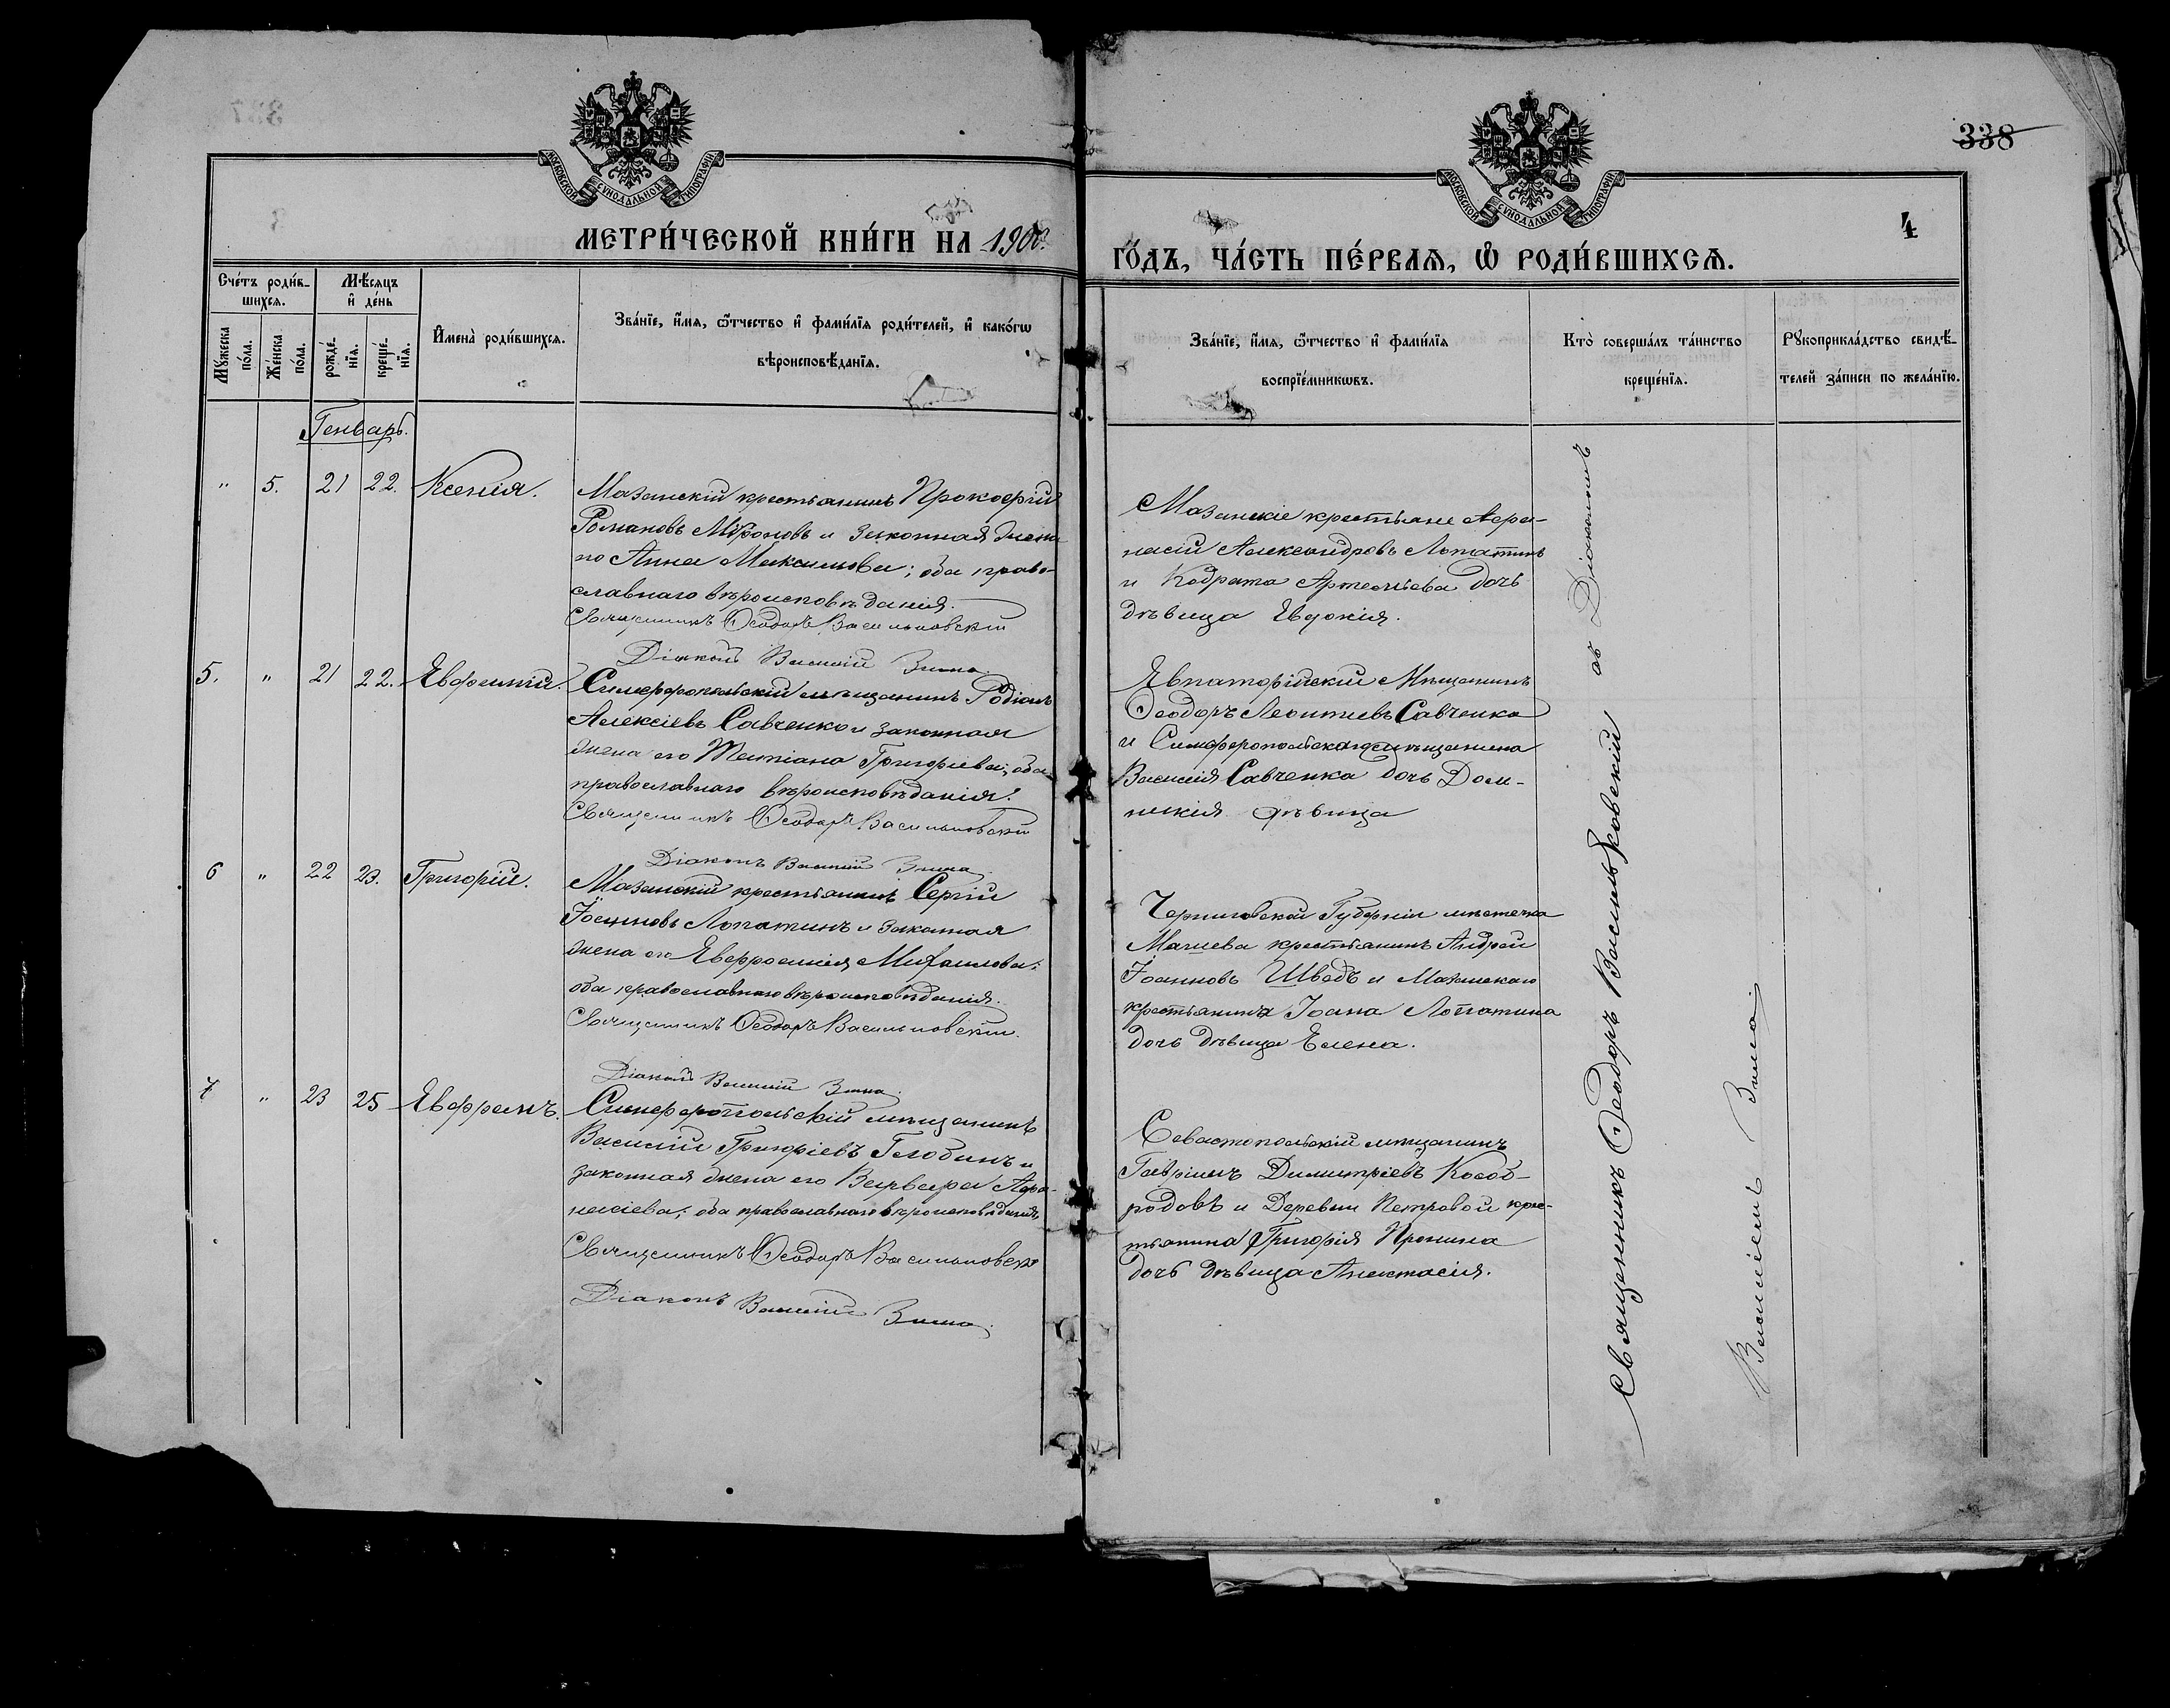 338
МОСКОВСКОЙ СУНОДАЛЬНОЙ ТИПОГРАФІИ
МОСКОВСКОЙ СУНОДАЛЬНОЙ ТИПОГРАФІИ
4
МЕТРИ́ЧЕСКОЙ КНИ́ГИ НА 1900
ГО́ДЪ, ЧА́СТЬ ПЕ́РВАЯ, Ѡ҆ РОДИ́ВШИХСЯ.
Сче́тъ роди́в-
шихся.
Мѣ́сяцъ
и҆ де́нь
Му́жеска
по́ла.
Же́нска
по́ла.
рожде́-
нїя.
креще́-
нїя.
И҆мена̀ роди́вшихся.
Зва́нїе, и҆́мя, ѻ҆́тчество и҆ фами́лїя роди́телей, и҆ како́гѡ
вѣроисповѣ́данїя.
Зва́нїе, и҆́мя, ѻ҆́тчество и҆ фами́лїя
воспрїе́мникѡвъ.
Кто̀ соверша́лъ та́инство
креще́нїя.
Рꙋкоприкла́дство свидѣ́-
телей за́писи по жела́нїю.
Генварь.
" 5. 21 22. Ксенія.
Мазанскій крестьянинъ Прокофій
Романовъ Мѵроновъ и законная жена
Анна Максимова; оба право-
славнаго вѣроисповѣданія.
Священникъ Ѳеодоръ Васильковскій
Діаконъ Василій Зима.
Мазанскіе крестьяне Афа-
насій Александровъ Лопатинъ
и Кодрата Артемьева дочь
дѣвица Евдокія.
5. " 21 22. Евфимій.
Симферопольскій мѣщанинъ Родіонъ
Алексіевъ Савченко и законная
жена его Татіана Григоріева; оба
православнаго вѣроисповѣданія.
Священникъ Ѳеодоръ Васильковскій
Діаконъ Василій Зима.
Евпаторійскій Мѣщанинъ
Ѳеодоръ Леонтиевъ Савченко
и Симферопольскаго мѣщанина
Василія Савченка дочь Дом-
никія дѣвица
6 " 22 23. Григорій.
Мазанскій крестьянинъ Сергій
Іоанновъ Лопатинъ и законная
жена его Евфросинія Михаилова;
оба православнаго вѣроисповѣданія.
Священникъ Ѳеодоръ Васильковскій.
Діаконъ Василій Зима.
Черниговской Губерніи мѣстечка
крестьянинъ Андрей
Іоанновъ Шведъ и Мазанскаго
крестьянина Іоана Лопатина
дочь дѣвица Елена.
7 " 23 25 Евфремъ.
Симферопольскій мѣщанинъ
Василій Григоріевъ Глобинъ и
законная жена его Варвара Афа-
насіева; оба православнаго вѣроисповѣданія
Священникъ Ѳеодоръ Васильковскій
Діаконъ Василій Зима.
Севастопольскій мѣщанинъ
Гавріилъ Димитріевъ Кособ-
родовъ и Деревни Петровой крес-
тьянина Григорія Пронина
дочь дѣвица Анастасія.
Священникъ Ѳеодоръ Васильковскій съ Діакономъ
Василіемъ Зима.